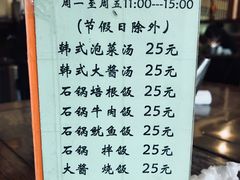 周一至周五11:00—15:00
(节假日除外)
韩式泡菜汤 25元
韩式大酱汤 25元
石锅培根饭 25元
石锅牛肉饭 25元
石锅鱿鱼饭 25元
石锅 拌饭 25元
大酱 烧饭 25元